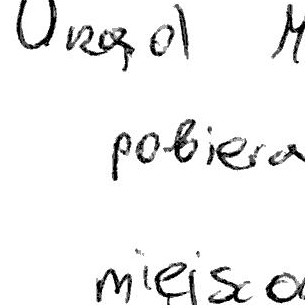 Urząd M
pobiera
miejsco